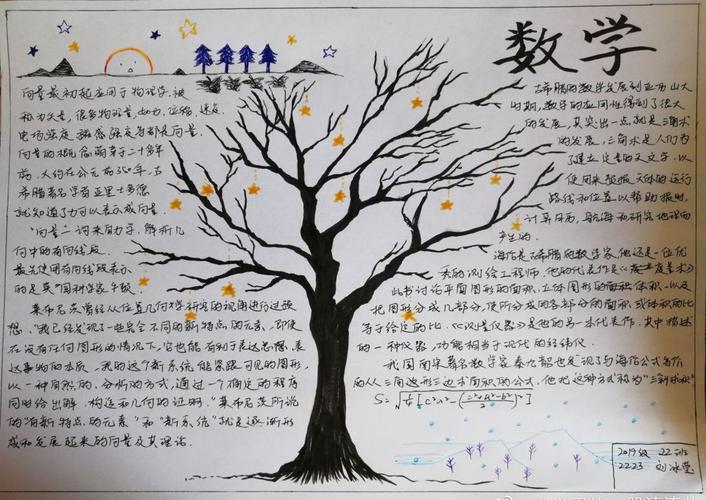 数学
向量最初被应用于物理学.被
称为矢量,很多物理量,如力、位移、速度、
电场强度、磁感强度等都是向量.
向量的概念萌芽于二千多年
前.大约在公元前350年,古
希腊著名学者亚里士多德
就知道了力可以表示成向量.
"向量"一词来自力学、解析几
何中的有向线段.
最先使用有向线段表示
的是英国科学家牛顿.
莱布尼茨曾经从位置几何学研究的视角进行过预
想."我已经发现一些完全不同的新特点的元素,即使
在没有任何图形的情况下,它也能有利于表达思想、表
达事物的本质.我的这个新系统能紧跟可见的图形,
以一种自然的、分析的方式,通过一个确定的程序
同时给出解、构造和几何的证明."莱布尼茨所说
的"有新特点的元素"和"新系统"就是逐渐形
成和发展起来的向量及其理论.
古希腊的数学发展到亚历山大
时期,数学的应用性得到了很大
的发展,其突出一点就是三角术
的发展.三角术是人们为
了建立定量的天文学.以
便用来预报天体的运行
路线和位置以帮助报时,
计算日历,航海和研究地理而
产生的.
海伦是古希腊的数学家,他还是一位优
秀的测绘工程师,他的代表作是《测量术》
此书讨论平面图形的面积,立体图形的面积体积.以及
把图形分成几部分,使所分成的各部分的面积或体积的比
等于给定的比.《测量仪器》是他的另一本代表作.其中描述
的一种仪器,功能相当于现代的经纬仪.
我国南宋著名数学家秦九韶也发现了与海伦公式等价
的从三角形三边求面积的公式.他把这种方法称为"三斜求积"
S=√{1/4[c²a²-((c²+a²-b²)/2)²]}
2019级 22班
2223 刘冰莹